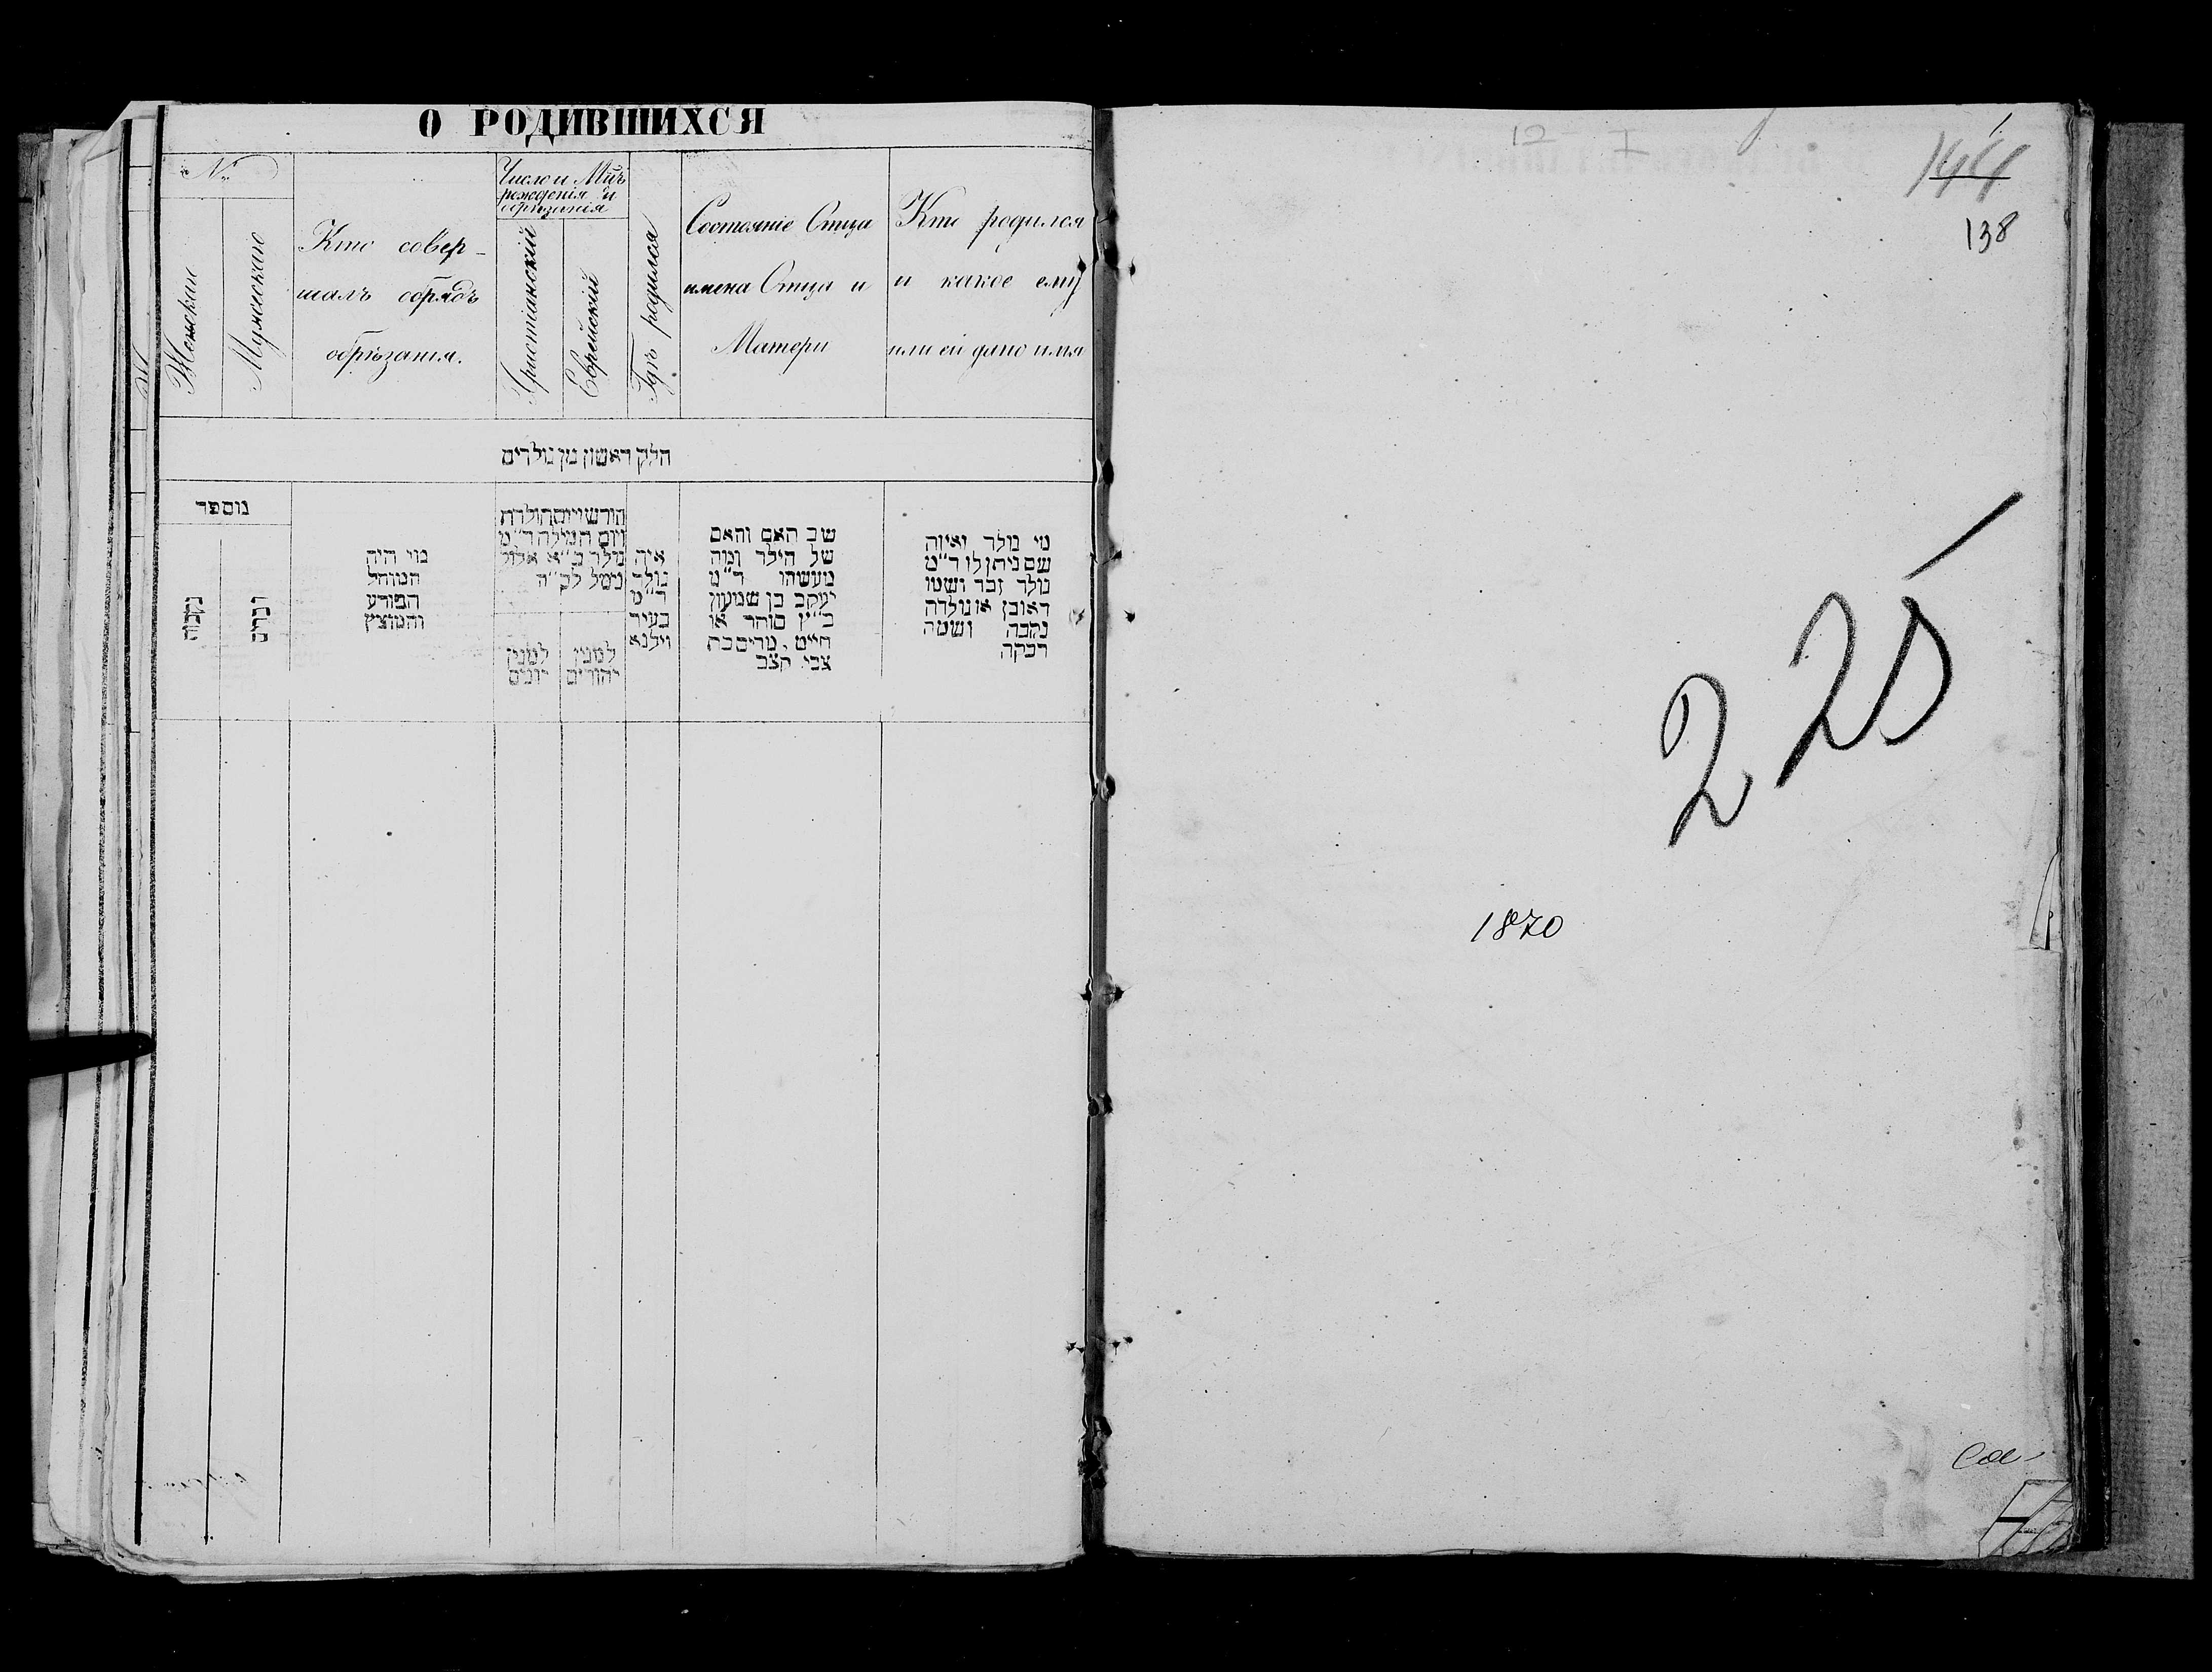 О РОДИВШИХСЯ
№
Женскаго
Мужескаго
Кто совер-
шалъ обрядъ
обрѣзанія.
Число и Мѣц
рожденія и
обрѣзанія
Христіанскій
Еврейскій
Гдѣ родился
Состояніе Отца
имена Отца и
Матери
Кто родился
и какое ему
или ей дано имя
חלק ראשון מן נולדים
מוספר
נקבות
זכרים
מי היה
המוהל
הפורע
והמוצץ
ויום המילה ד״מ
נולד כ״א אלול
נימל לכ״ה
למנין
יונים
למנין
יהודים
איה
נולד
ד״מ
בעיר
וילנא
שב האם והאם
של הילד ומה
מעשהו ד״מ
יעקב בן שמעון
כ״ץ סוחר או
חייט, מרים בת
צבי קצב
מי נולד ואיזה
שם ניתן לו ד״מ
נולד זכר ושמו
ראובן או נולדה
נקבה ושמה
רבקה
12
I
1
144
138
225
1870